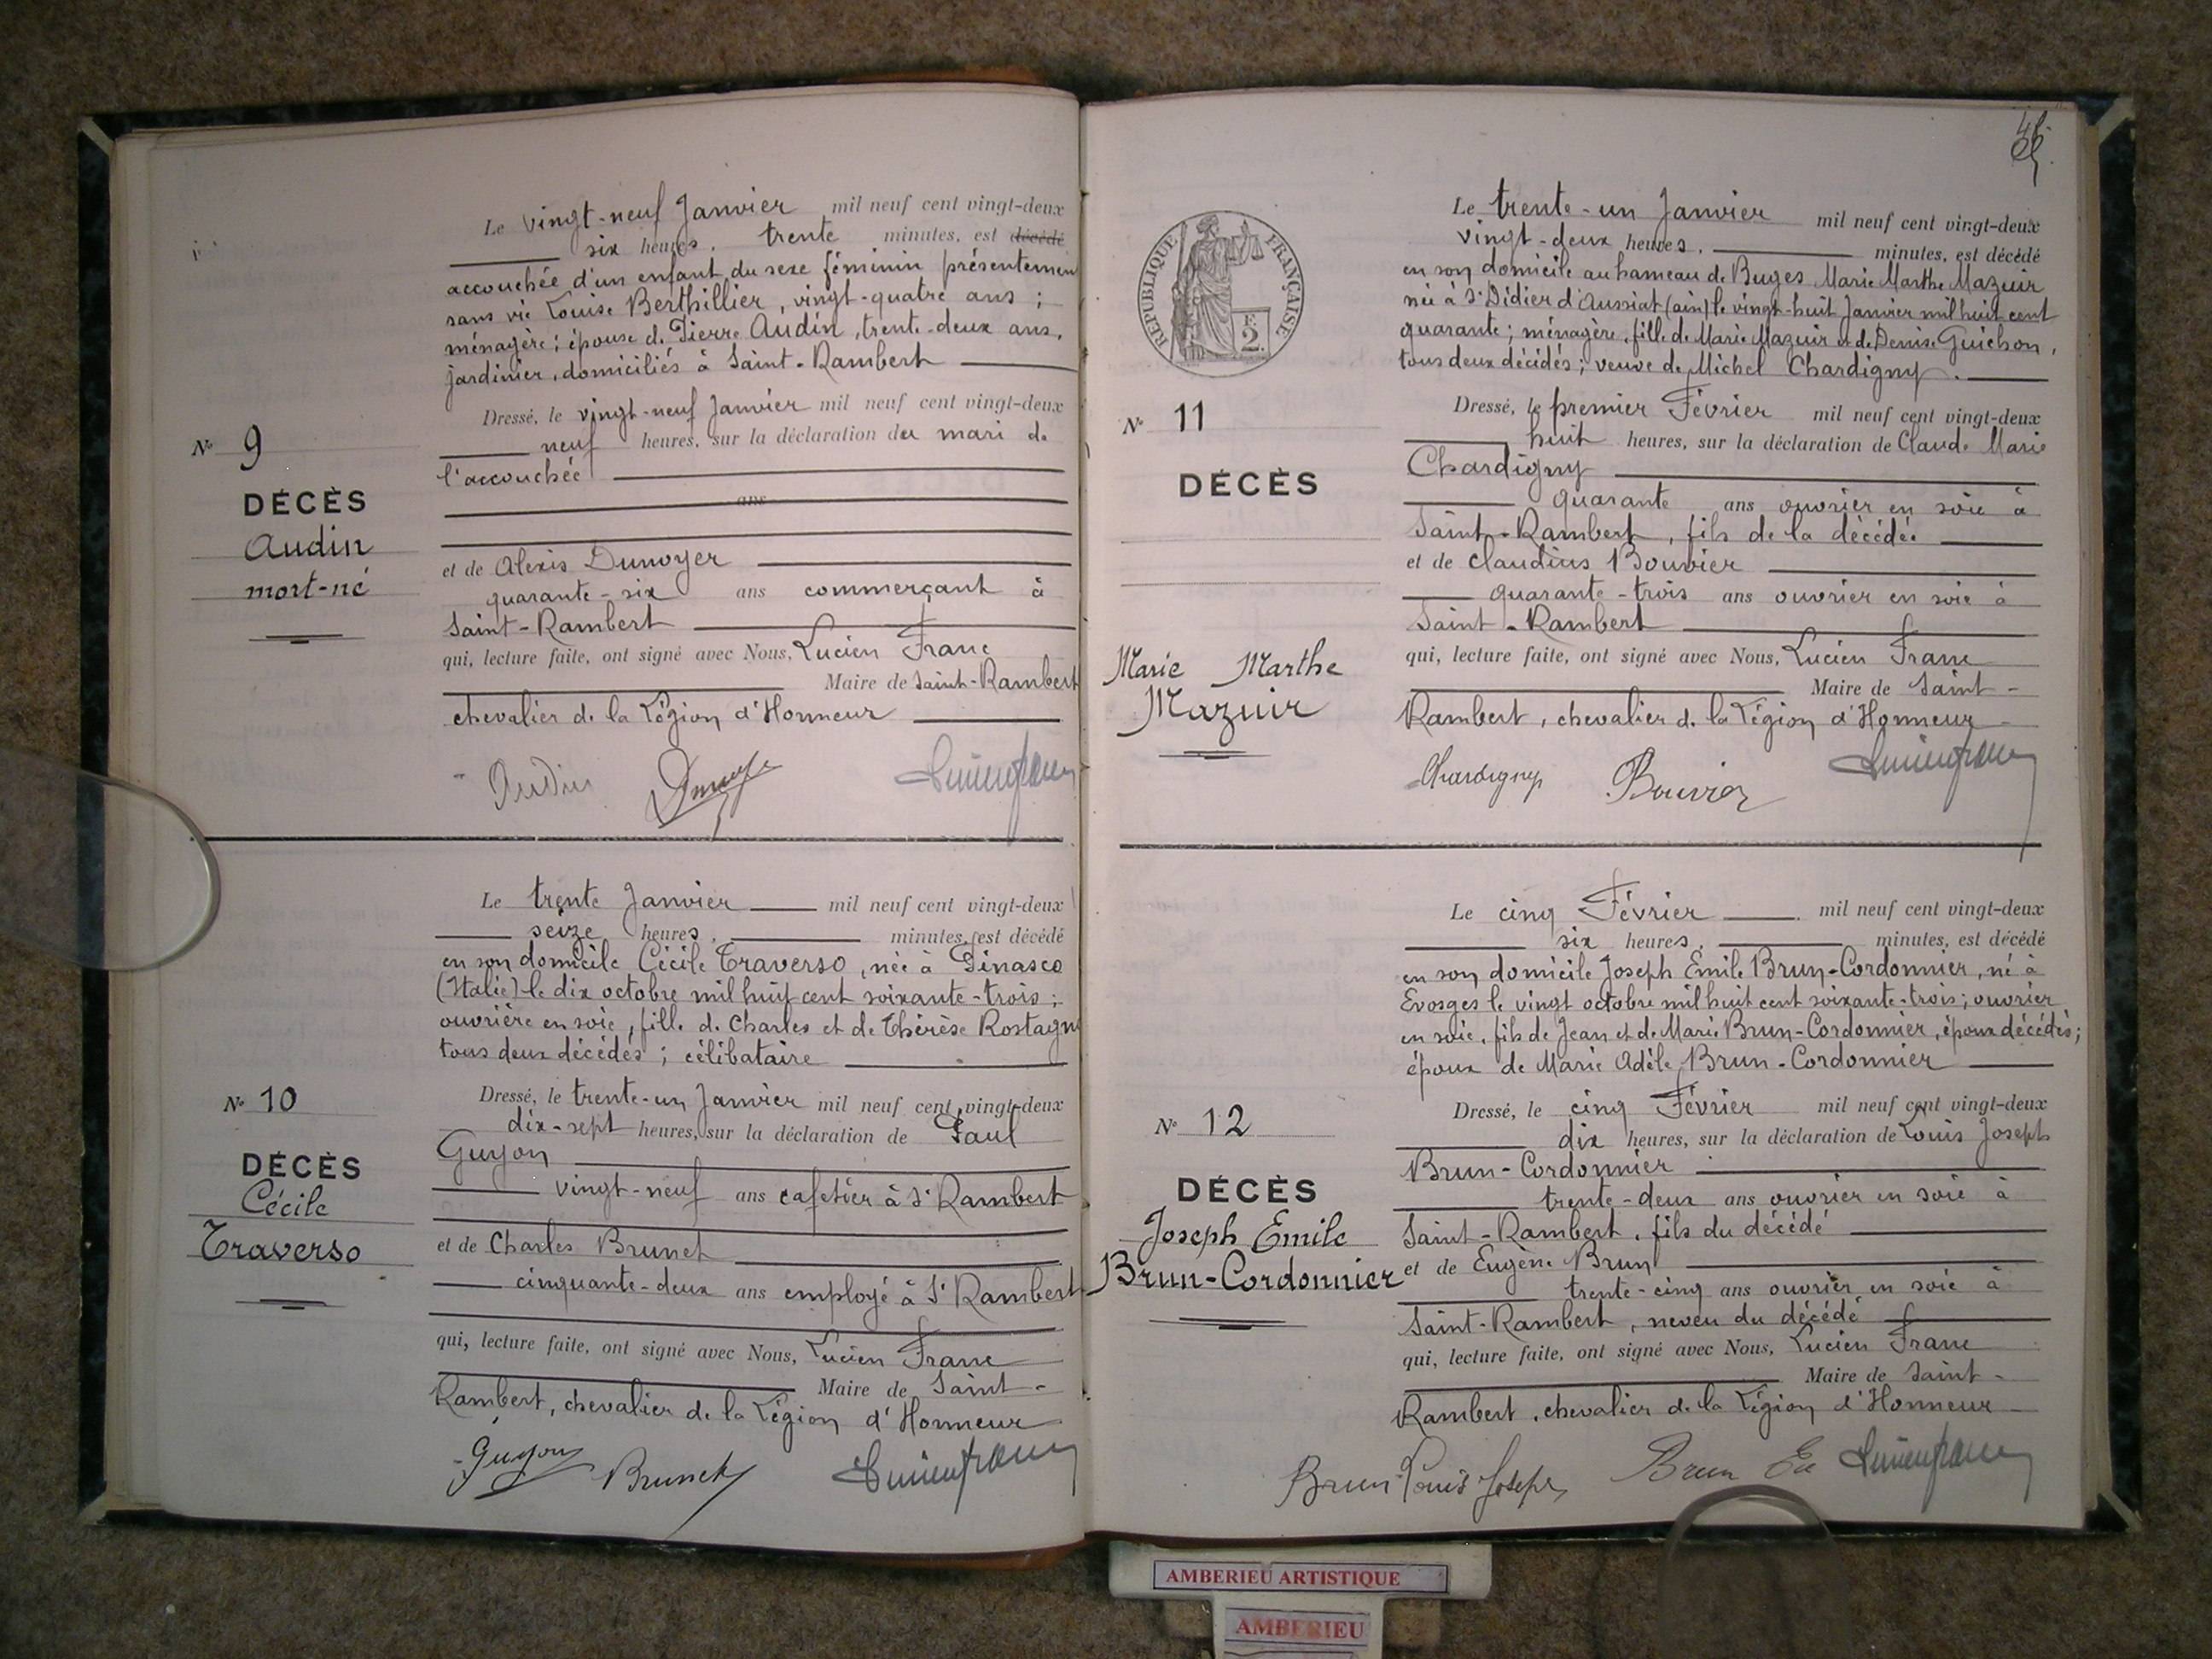 Le vingt-neuf Janvier mil neuf cent vingt-deux
six heures, trente minutes, est décédé
accouchée d'un enfant du sexe féminin présentement
sans vie Louise Berthillier, vingt-quatre ans ;
ménagère ; épouse de Pierre Audin, trente-deux ans,
jardinier, domiciliés à Saint-Rambert
Dressé, le vingt-neuf Janvier mil neuf cent vingt-deux
neuf heures, sur la déclaration du mari de
l'accouchée
ans
N° 9
DÉCÈS
Audin
mort-né
et de Alexis Dunoyer
quarante-six ans commerçant à
Saint-Rambert
qui, lecture faite, ont signé avec Nous, Lucien Franc
Maire de Saint-Rambert
chevalier de la Légion d'Honneur
Audin
Le trente Janvier mil neuf cent vingt-deux
seize heures, minutes, est décédé
en son domicile Cécile Traverso, née à Pinasca
(Italie) le dix octobre mil huit cent soixante-trois ;
ouvrière en soie, fille de Charles et de Thérèse Rostagn
tous deux décédés ; célibataire
N° 10
DÉCÈS
Cécile
Traverso
Dressé, le trente-un Janvier mil neuf cent vingt-deux
dix-sept heures, sur la déclaration de Paul
Guyon
vingt-neuf ans cafetier à St Rambert
et de Charles Brunet
cinquante-deux ans employé à St Rambert
qui, lecture faite, ont signé avec Nous, Lucien Franc
Maire de Saint-
Rambert, chevalier de la Légion d'Honneur
Guyon Brunet
RÉPUBLIQUE FRANÇAISE
F.
2.
Le trente-un Janvier mil neuf cent vingt-deux
vingt-deux heures, minutes, est décédé
en son domicile au hameau de Buges Marie Marthe Mazuir
née à St Didier d'Aussiat (ain) le vingt-huit Janvier mil huit cent
quarante ; ménagère, fille de Marie Mazuir et de Denise Guichon,
tous deux décédés ; veuve de Michel Chardigny.
N° 11
DÉCÈS
Marie Marthe
Mazuir
Dressé, le premier Février mil neuf cent vingt-deux
huit heures, sur la déclaration de Claude Marie
Chardigny
quarante ans ouvrier en soie à
Saint-Rambert, fils de la décédée
et de Claudius Bouvier
quarante-trois ans ouvrier en soie à
Saint-Rambert
qui, lecture faite, ont signé avec Nous, Lucien Franc
Maire de Saint-
Rambert, chevalier de la Légion d'Honneur
Chardigny Bouvier
Le cinq Février mil neuf cent vingt-deux
six heures, minutes, est décédé
en son domicile Joseph Emile Brun-Cordonnier, né à
Evosges le vingt octobre mil huit cent soixante-trois ; ouvrier
en soie, fils de Jean et de Marie Brun-Cordonnier, époux décédés ;
époux de Marie Adèle Brun-Cordonnier
N° 12
DÉCÈS
Joseph Emile
Brun-Cordonnier
Dressé, le cinq Février mil neuf cent vingt-deux
dix heures, sur la déclaration de Louis Joseph
Brun-Cordonnier
trente-deux ans ouvrier en soie à
Saint-Rambert, fils du décédé
et de Eugène Brun
trente-cinq ans ouvrier en soie à
Saint-Rambert, neveu du décédé
qui, lecture faite, ont signé avec Nous, Lucien Franc
Maire de Saint-
Rambert, chevalier de la Légion d'Honneur
Brun Louis Joseph Brun Eu
AMBERIEU ARTISTIQUE
AMBERIEU